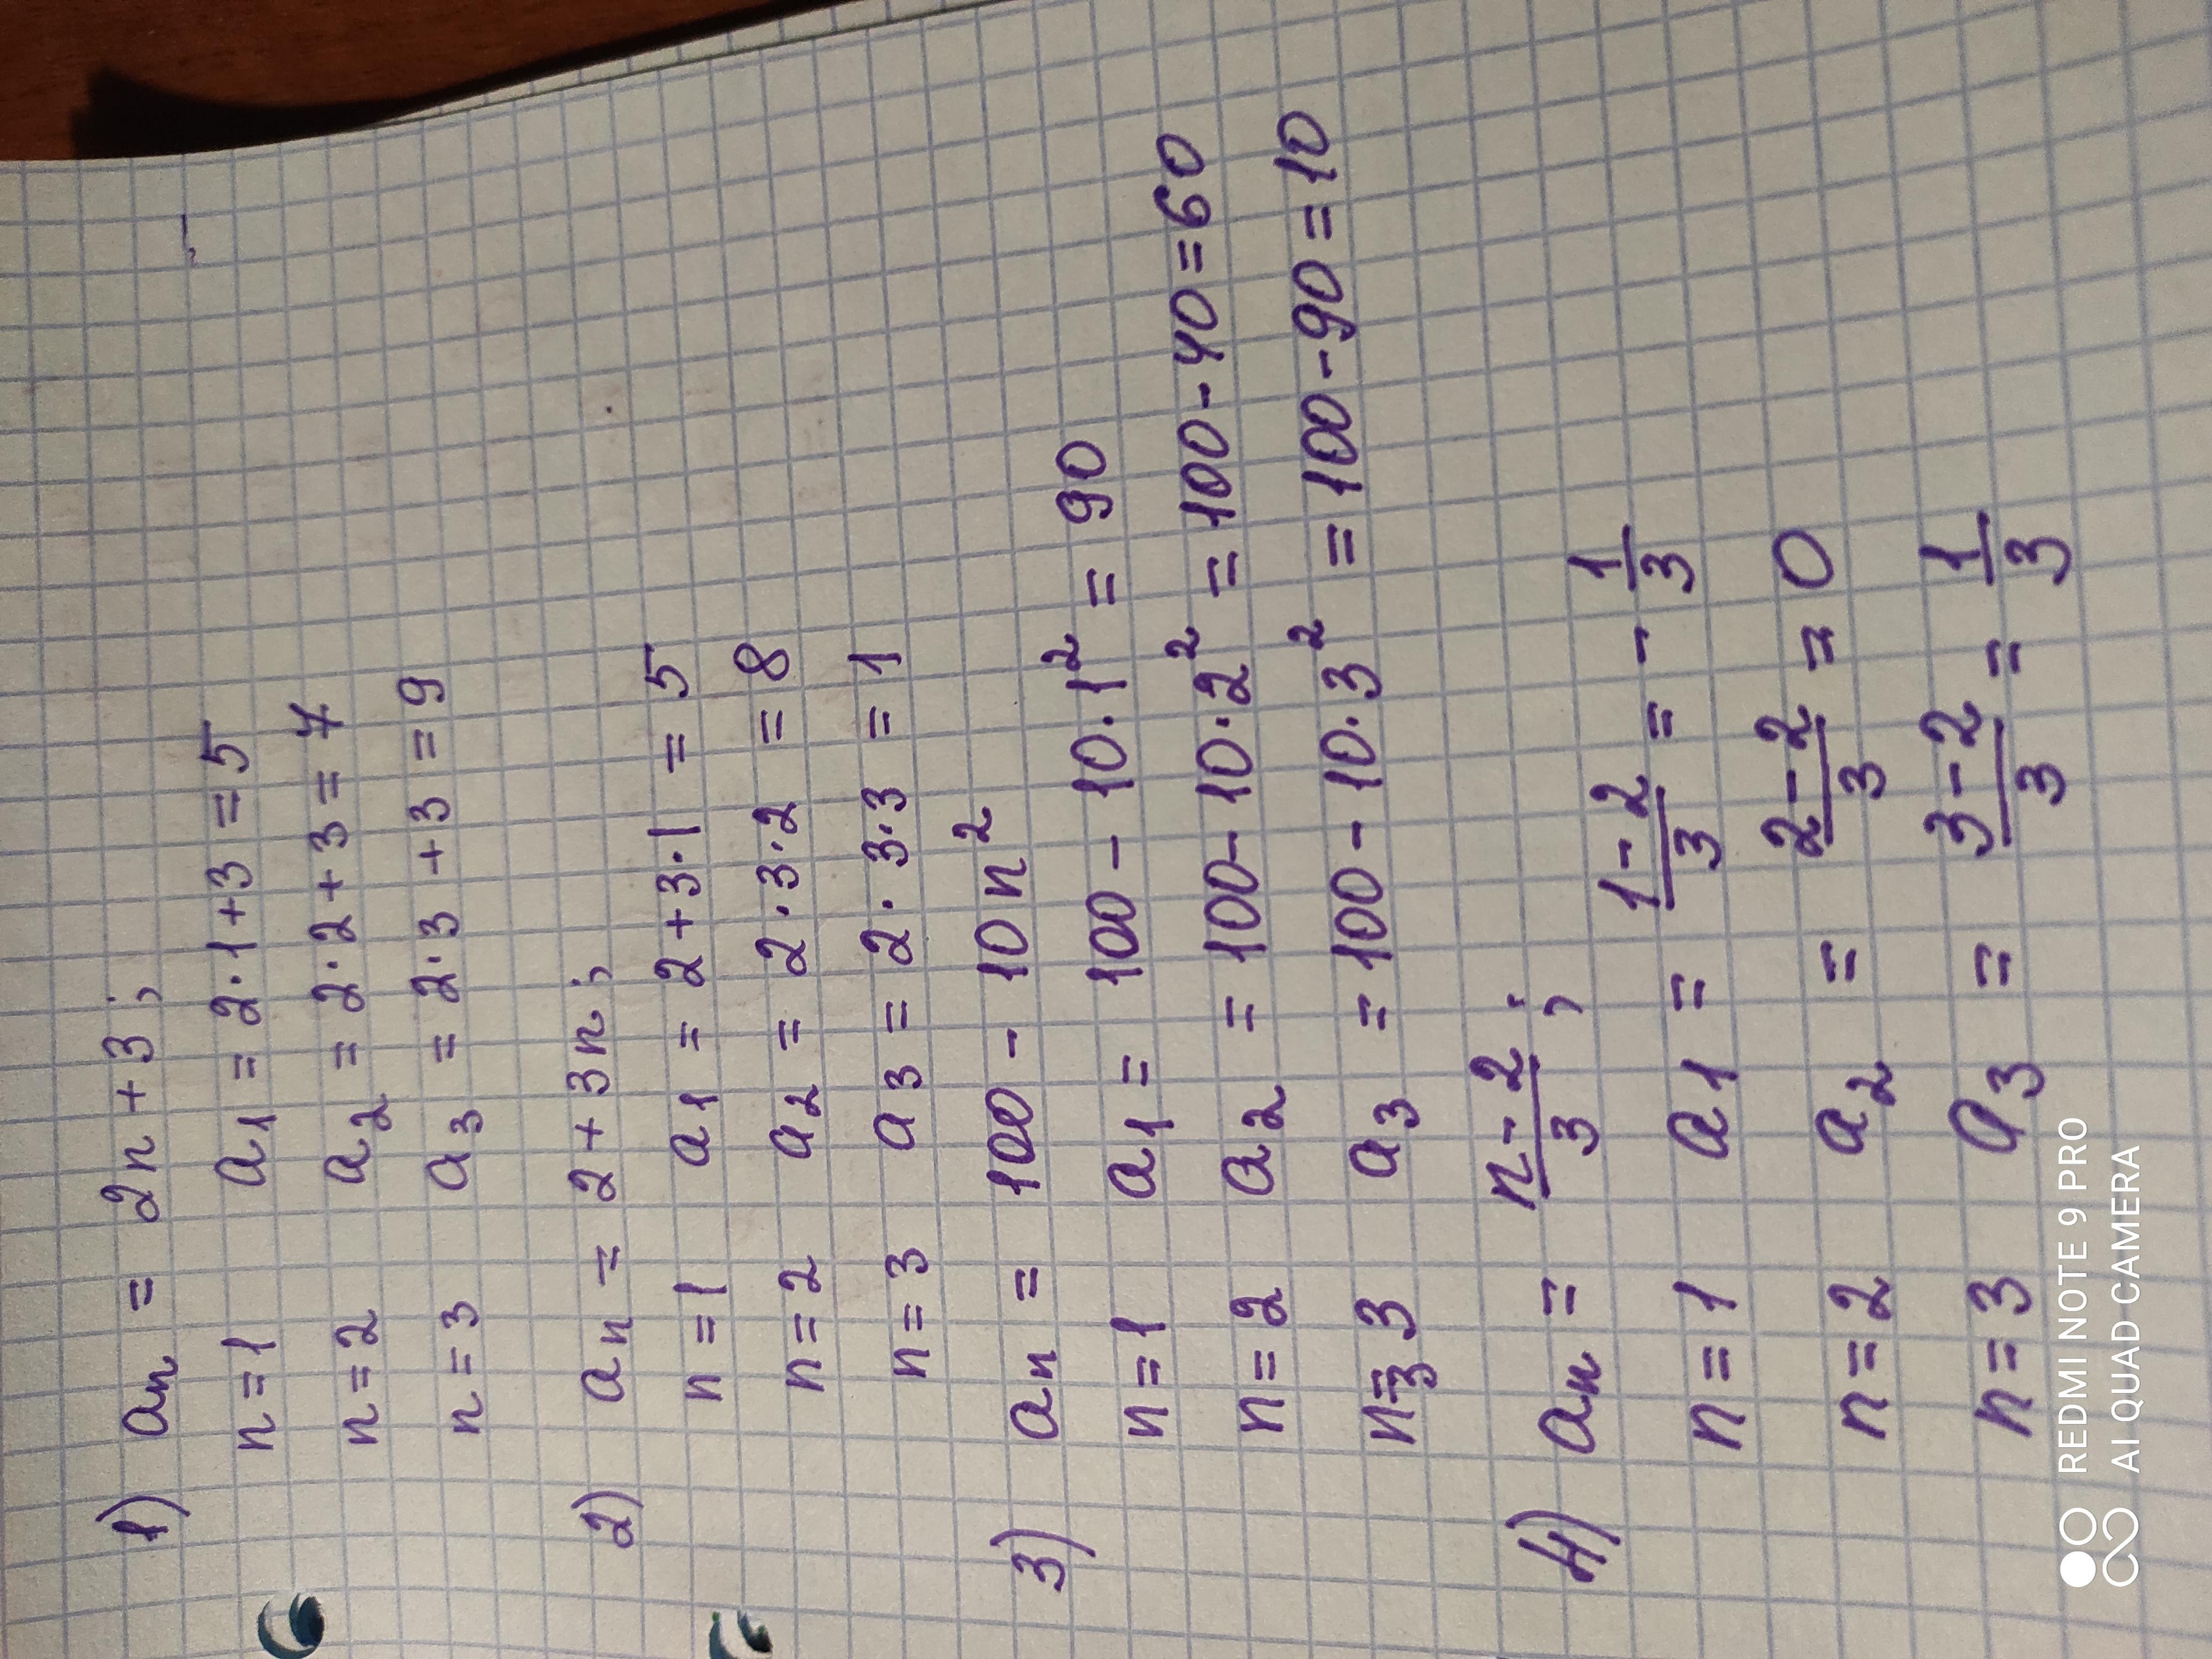 1) an = 2n + 3;
n = 1 a1 = 2·1+3 = 5
n = 2 a2 = 2·2+3 = 7
n = 3 a3 = 2·3 +3 = 9
2) an = 2 + 3n;
n = 1 a1 = 2+3·1 = 5
n = 2 a2 = 2·3·2 = 8
n = 3 a3 = 2·3·3 = 1
3) an = 100 - 10n²
n = 1 a1 = 100 - 10·1² = 90
n = 2 a2 = 100 - 10·2² = 100 - 40 = 60
n = 3 3 a3 = 100 - 10·3² = 100 - 90 = 10
4) an = (n-2)/3;
n = 1 a1 = (1-2)/3 = - 1/3
n = 2 a2 = (2-2)/3 = 0
n = 3 a3 = (3-2)/3 = 1/3
REDMI NOTE 9 PRO
AI QUAD CAMERA